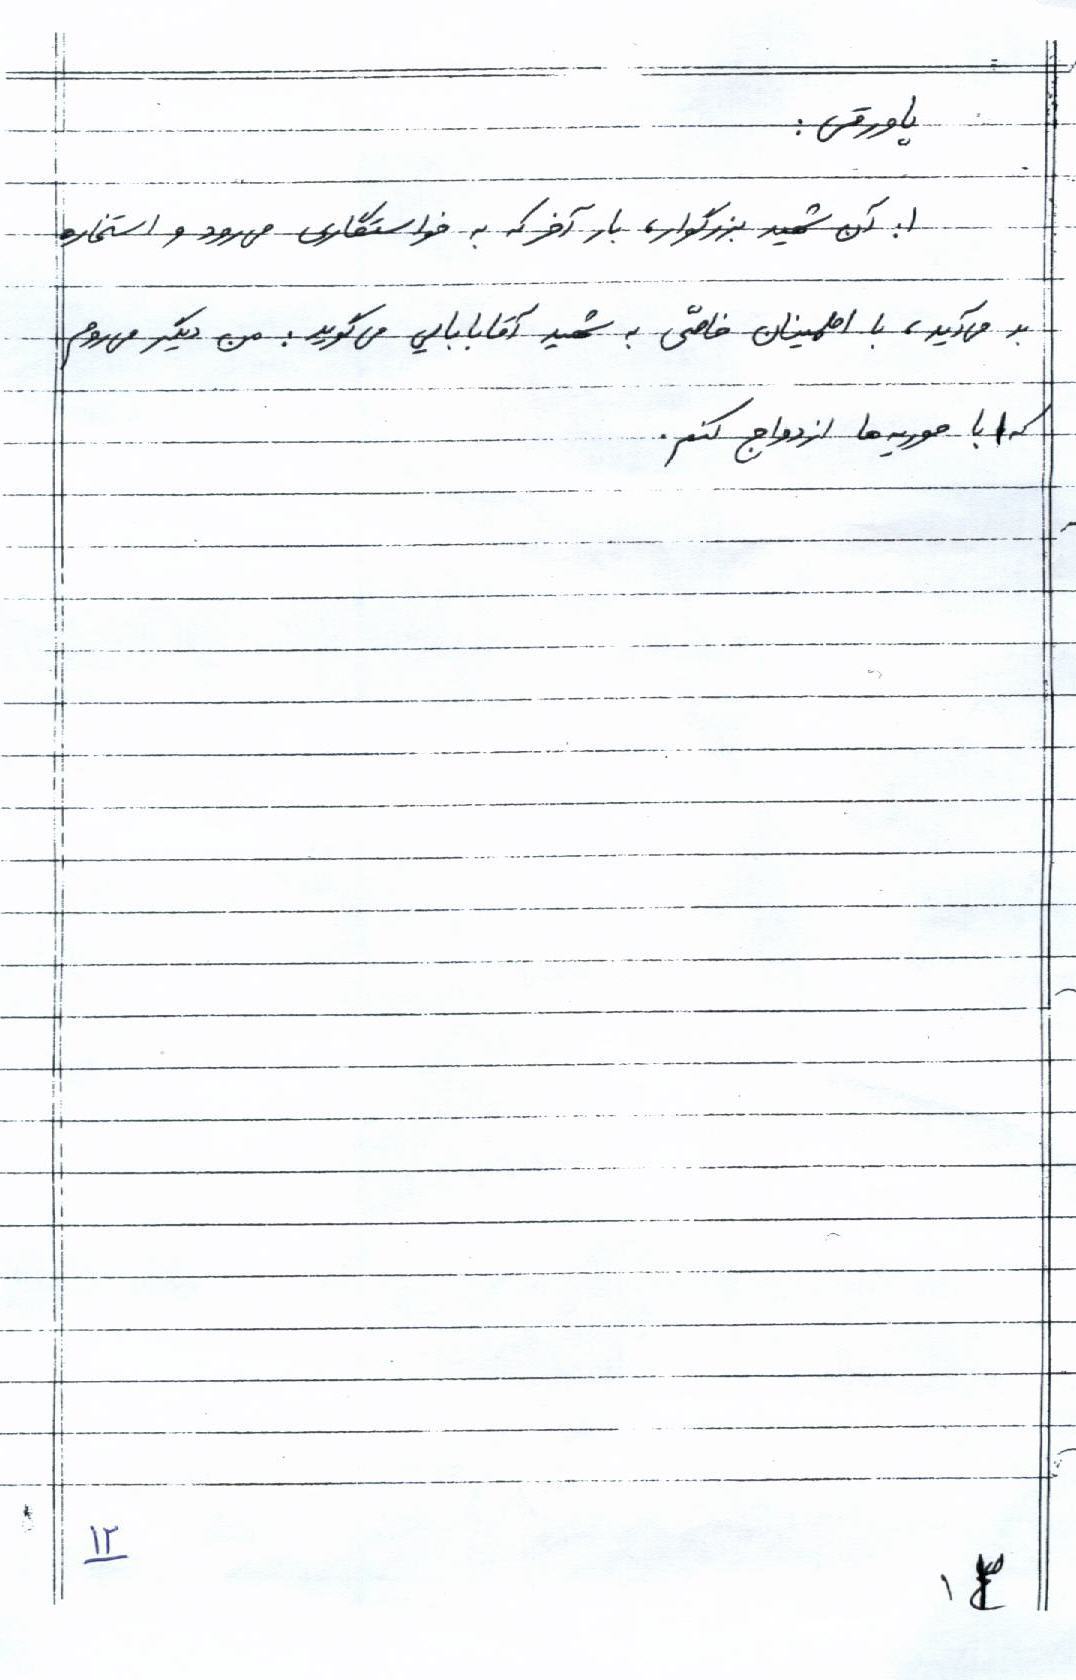 پاورقی :
۱. آن شهید بزرگوار، بار آخر که به خواستگاری می‌رود و استخاره
بد می‌آید، با اطمینان خاصّی به شهید آقابابایی می‌گوید : من دیگر می‌روم
که با حوریه‌ها ازدواج کنم.
۱۲